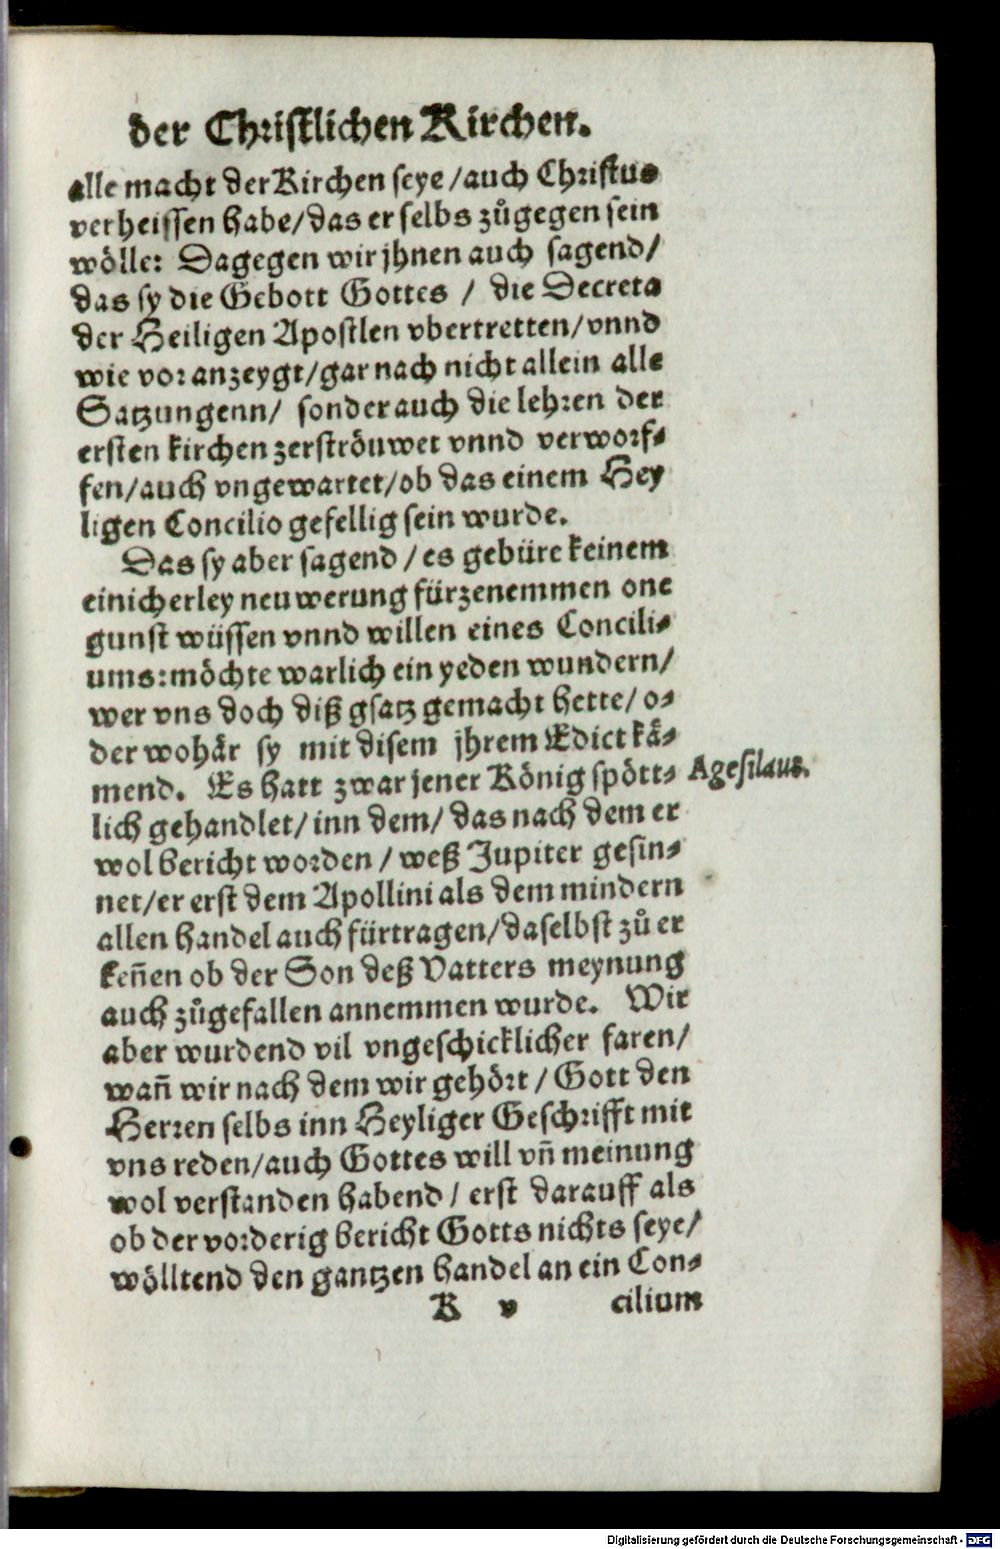 der Christlichen Kirchen.
alle macht der Kirchen seye/auch Christus
verheissen habe/das er selbs zůgegen sein
wölle: Dagegen wir jhnen auch sagend/
das sy die Gebott Gottes / die Decreta
der Heiligen Apostlen vbertretten/vnnd
wie vor anzeygt/gar nach nicht allein alle
Satzungenn/ sonder auch die lehren der
ersten kirchen zerströuwet vnnd verworf⸗
fen/auch vngewartet/ob das einem Hey
ligen Concilio gefellig sein wurde.
Das sy aber sagend /es gebüre keinem
einicherley neuwerung fürzenemmen one
gunst wüssen vnnd willen eines Concili⸗
ums: möchte warlich ein yeden wundern/
wer vns doch diß gsatz gemacht hette/ o⸗
der wohär sy mit disem jhrem Edict kä⸗
mend. Es hatt zwar jener König spött⸗ Agesilaus.
lich gehandlet/ inn dem/ das nach dem er
wol bericht worden / weß Jupiter gesin⸗
net/er erst dem Apollini als dem mindern
allen handel auch fürtragen/daselbst zů er
keñen ob der Son deß Vatters meynung
auch zůgefallen annemmen wurde. Wir
aber wurdend vil vngeschicklicher faren/
wañ wir nach dem wir gehört / Gott den
Herren selbs inn Heyliger Geschrifft mit
vns reden/auch Gottes will vñ meinung
wol verstanden habend / erst darauff als
ob der vorderig bericht Gotts nichts seye/
wölltend den gantzen handel an ein Con⸗
K v cilium
Digitalisierung gefördert durch die Deutsche Forschungsgemeinschaft - DFG